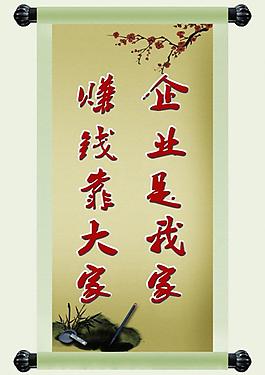 企业是我家
赚钱靠大家